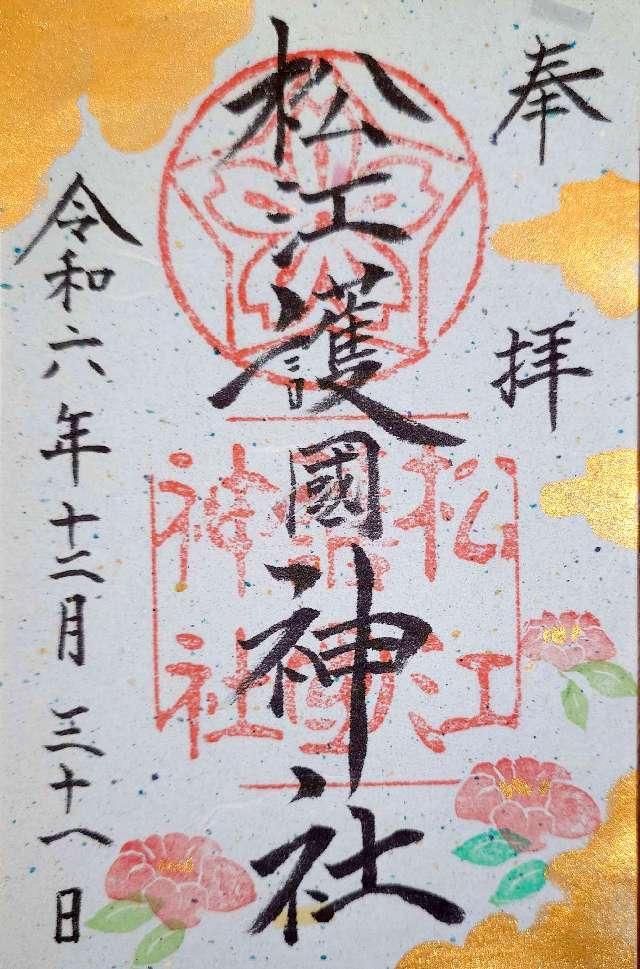 奉拝
松江護國神社
松江護國神社
令和六年十二月三十一日